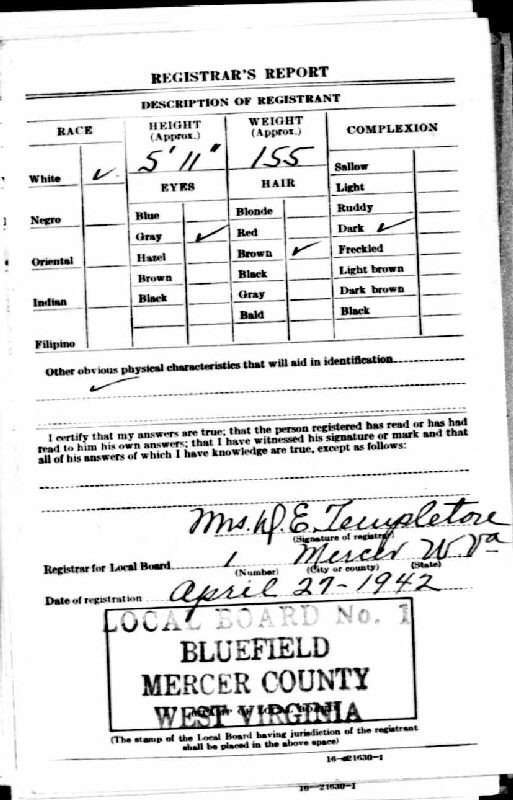 REGISTRAR'S REPORT
DESCRIPTION OF REGISTRANT
RACE
HEIGHT (Approx.)
WEIGHT (Approx.)
COMPLEXION
5' 11"
155
White ✓
EYES
HAIR
Sallow
Light
Negro
Blue
Blonde
Ruddy
Gray ✓
Red
Dark ✓
Oriental
Hazel
Brown ✓
Freckled
Brown
Black
Light brown
Indian
Black
Gray
Dark brown
Bald
Black
Filipino
Other obvious physical characteristics that will aid in identification
✓
I certify that my answers are true; that the person registered has read or has had
read to him his own answers; that I have witnessed his signature or mark and that
all of his answers of which I have knowledge are true, except as follows:
Mrs. D. E. Templeton
(Signature of registrar)
Registrar for Local Board 1 Mercer W Va
(Number) (City or county) (State)
Date of registration April 27-1942
LOCAL BOARD No. 1
BLUEFIELD
MERCER COUNTY
WEST VIRGINIA
(The stamp of the Local Board having jurisdiction of the registrant
shall be placed in the above space)
16—21630-1
16—21630-1